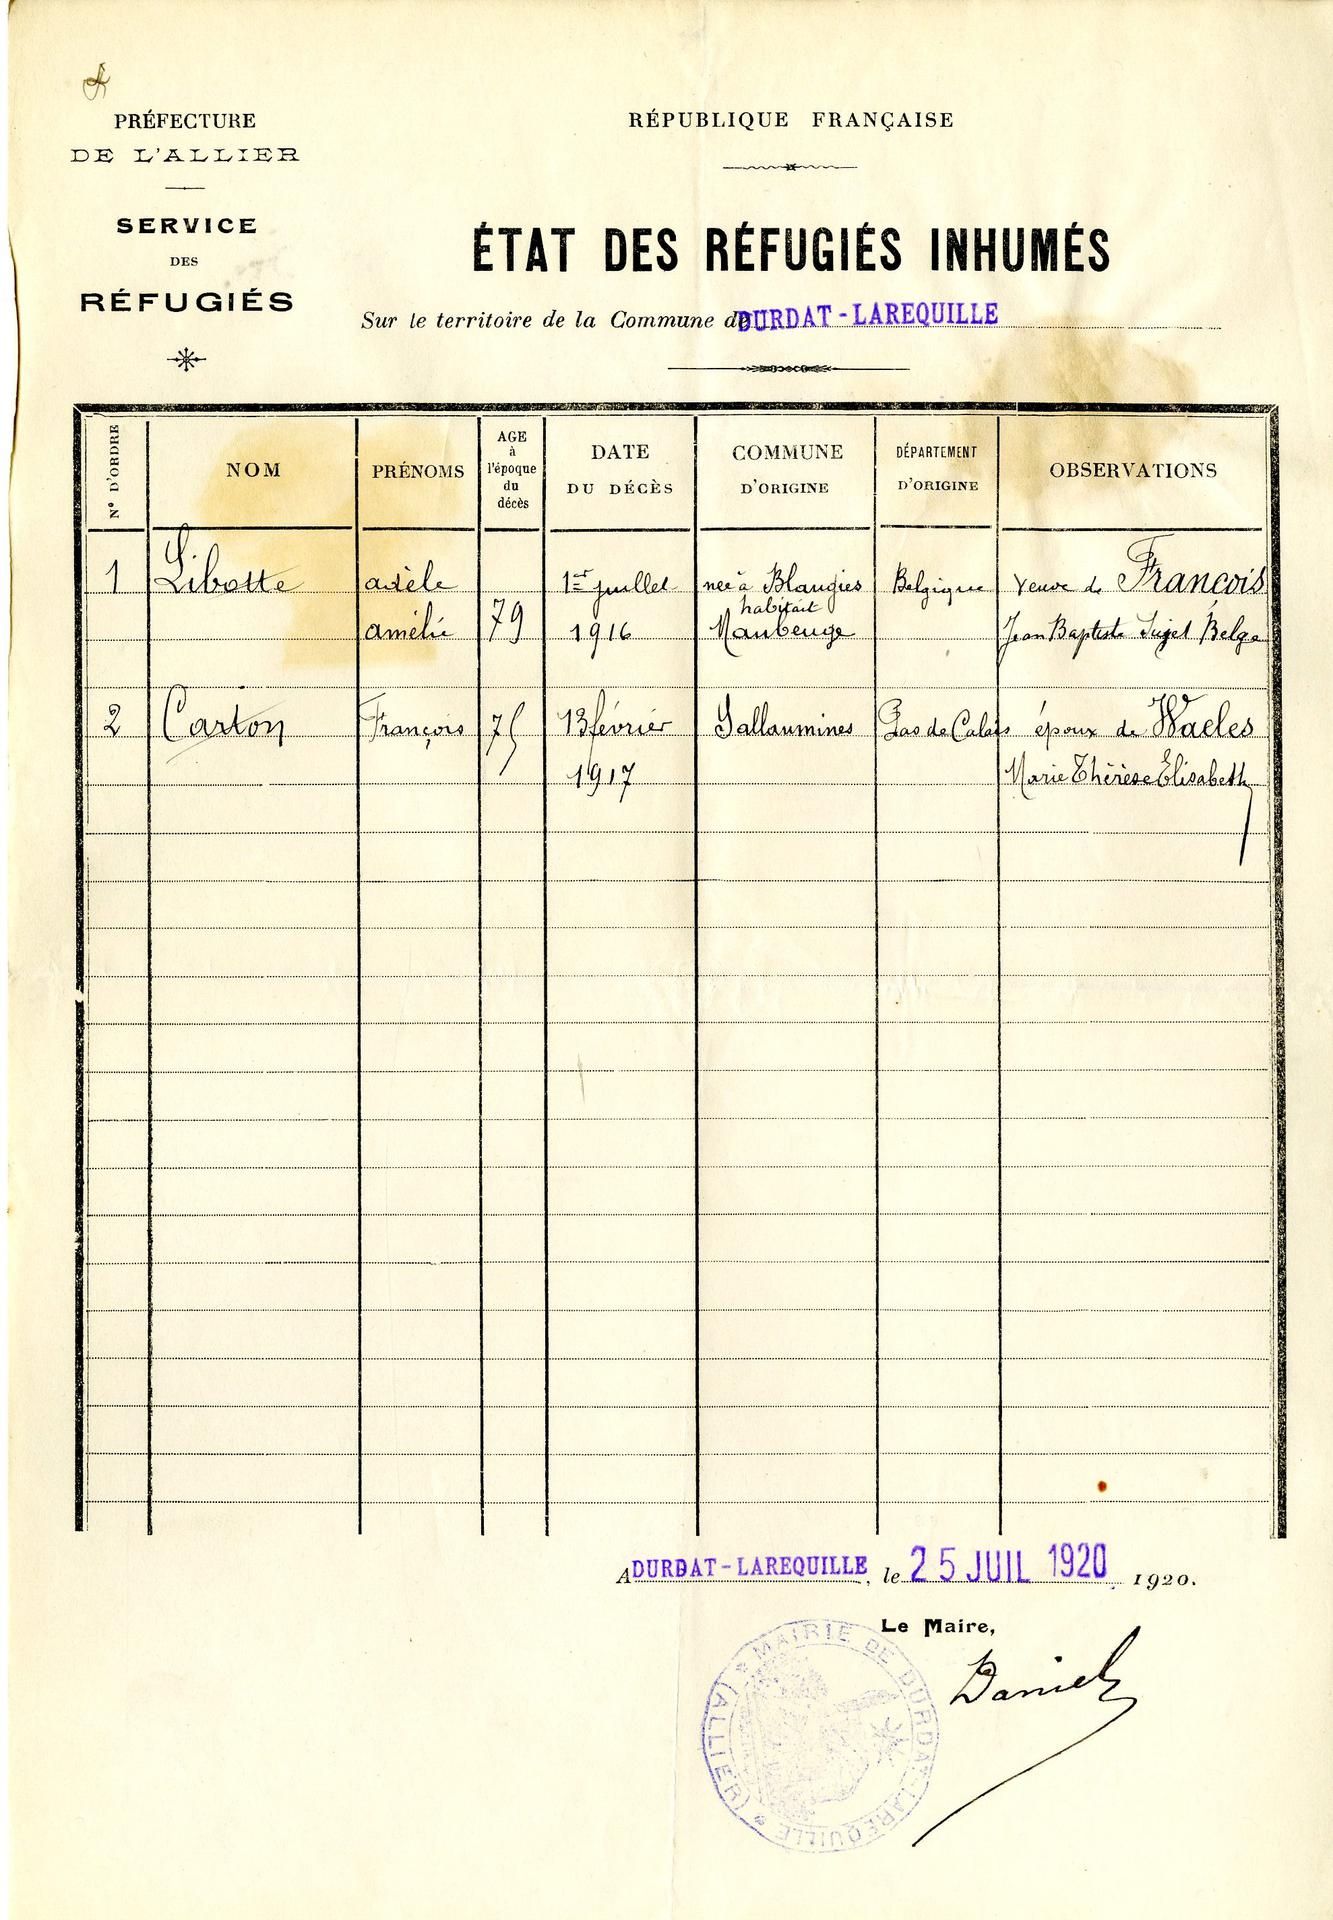 PRÉFECTURE
DE L'ALLIER
SERVICE
DES
RÉFUGIÉS
RÉPUBLIQUE FRANÇAISE
ÉTAT DES RÉFUGIÉS INHUMÉS
Sur le territoire de la Commune de DURDAT-LAREQUILLE
N° D'ORDRE
NOM
PRÉNOMS
AGE
à
l'époque
du
décès
DATE
DU DÉCÈS
COMMUNE
D'ORIGINE
DÉPARTEMENT
D'ORIGINE
OBSERVATIONS
1 Libotte adèle 1er juillet née à Blaugies Belgique veuve de François
habitait
amélie 79 1916 Maubeuge Jean Baptiste Sujet Belge
2 Carton François 75 13 février Sallaumines Pas de Calais époux de Waeles
1917 Marie Thérèse Elisabeth
A DURDAT-LAREQUILLE, le 25 JUIL 1920 1920.
Le Maire,
Daniel
MAIRIE DE DURDAT-LAREQUILLE
(ALLIER)